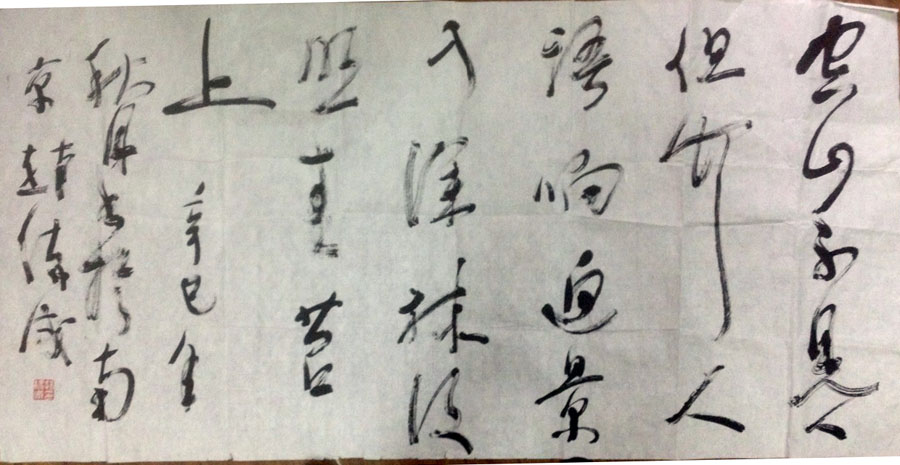 空山不見人
但聞人
語响迴景
入深林復
照青苔
上 辛巳金
秋月書於南
京 趙緒成